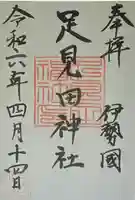 奉拝 伊勢國
足見田神社
令和六年四月十四日